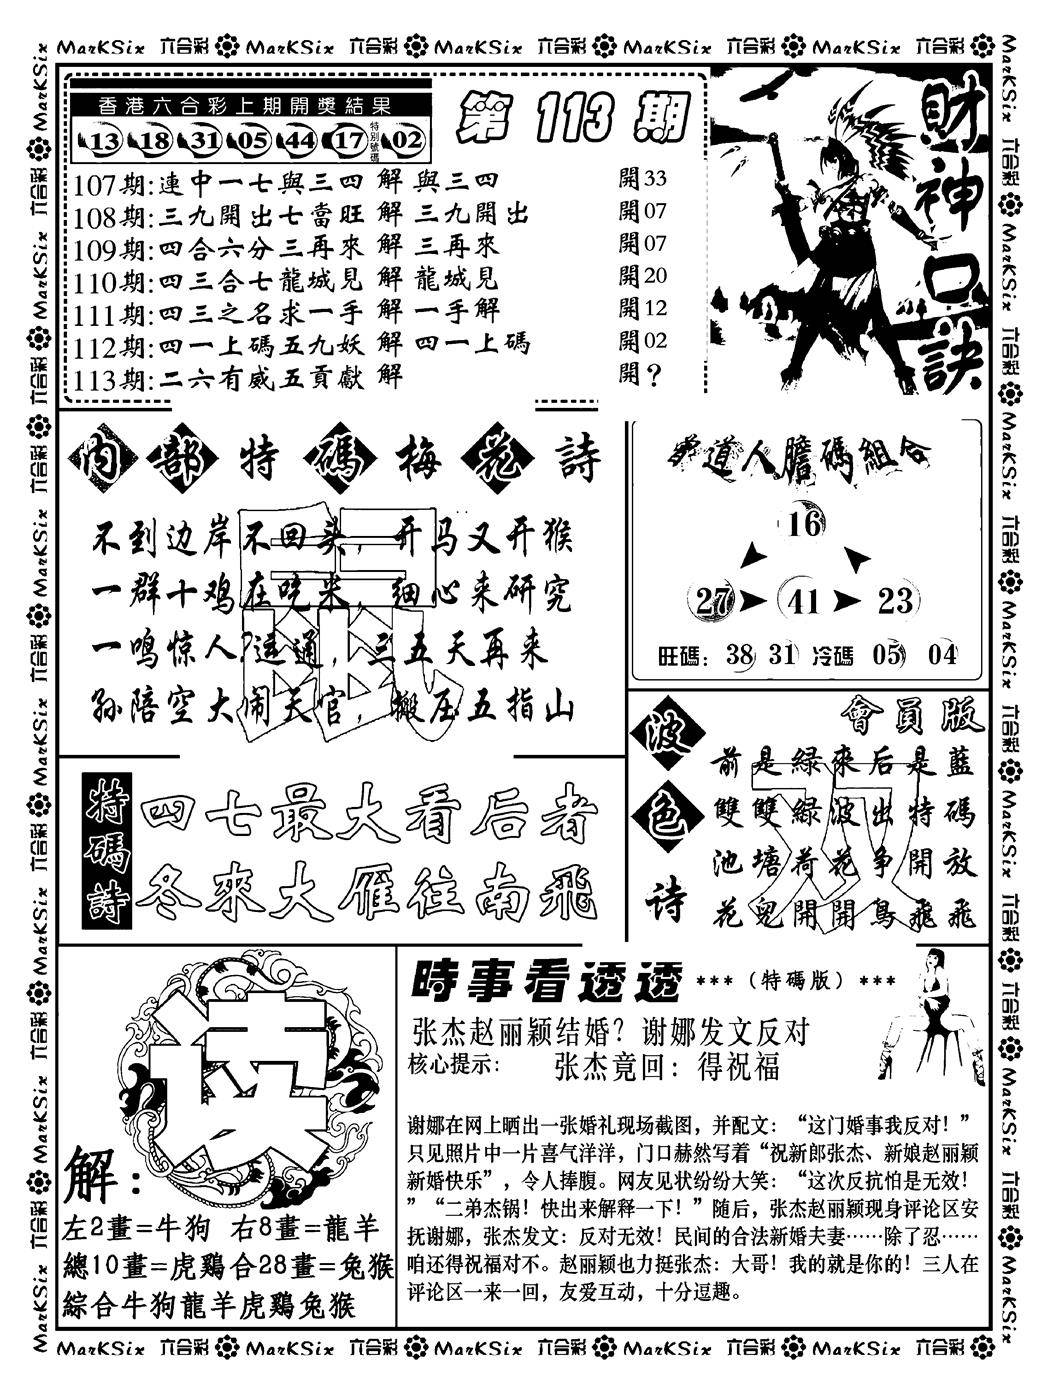 MarKSix 六合彩 MarKSix 六合彩 MarKSix 六合彩 MarKSix 六合彩 MarKSix 六合彩
香港六合彩上期開獎結果
13 18 31 05 44 17 特別號碼 02
第113期
107期:連中一七與三四 解 與三四 開33
108期:三九開出七當旺 解 三九開出 開07
109期:四合六分三再來 解 三再來 開07
110期:四三合七龍城見 解 龍城見 開20
111期:四三之名求一手 解 一手解 開12
112期:四一上碼五九妖 解 四一上碼 開02
113期:二六有威五貢獻 解 開?
財神口訣
内部特碼梅花詩
不到边岸不回头，开马又开猴
一群十鸡在吃米，细心来研究
一鸣惊人?运通，三五天再来
孙陪空大闹天官，搬压五指山
道人膽碼組合
16
27 41 23
旺碼：38 31 冷碼 05 04
波色诗
會員版
前是緑來后是藍
雙雙緑波出特碼
池塘荷花争開放
花兒開開鳥飛飛
双
特碼詩
四七最大看后者
冬來大雁往南飛
读
解：
左2畫=牛狗 右8畫=龍羊
總10畫=虎鷄合28畫=兔猴
綜合牛狗龍羊虎鷄兔猴
時事看透透 ***（特碼版）***
张杰赵丽颖结婚？谢娜发文反对
核心提示： 张杰竟回：得祝福
谢娜在网上晒出一张婚礼现场截图，并配文：“这门婚事我反对！”
只见照片中一片喜气洋洋，门口赫然写着“祝新郎张杰、新娘赵丽颖
新婚快乐”，令人捧腹。网友见状纷纷大笑：“这次反抗怕是无效！
”“二弟杰锅！快出来解释一下！”随后，张杰赵丽颖现身评论区安
抚谢娜，张杰发文：反对无效！民间的合法新婚夫妻……除了忍……
咱还得祝福对不。赵丽颖也力挺张杰：大哥！我的就是你的！三人在
评论区一来一回，友爱互动，十分逗趣。
MarKSix 六合彩 MarKSix 六合彩 MarKSix 六合彩 MarKSix 六合彩 MarKSix 六合彩